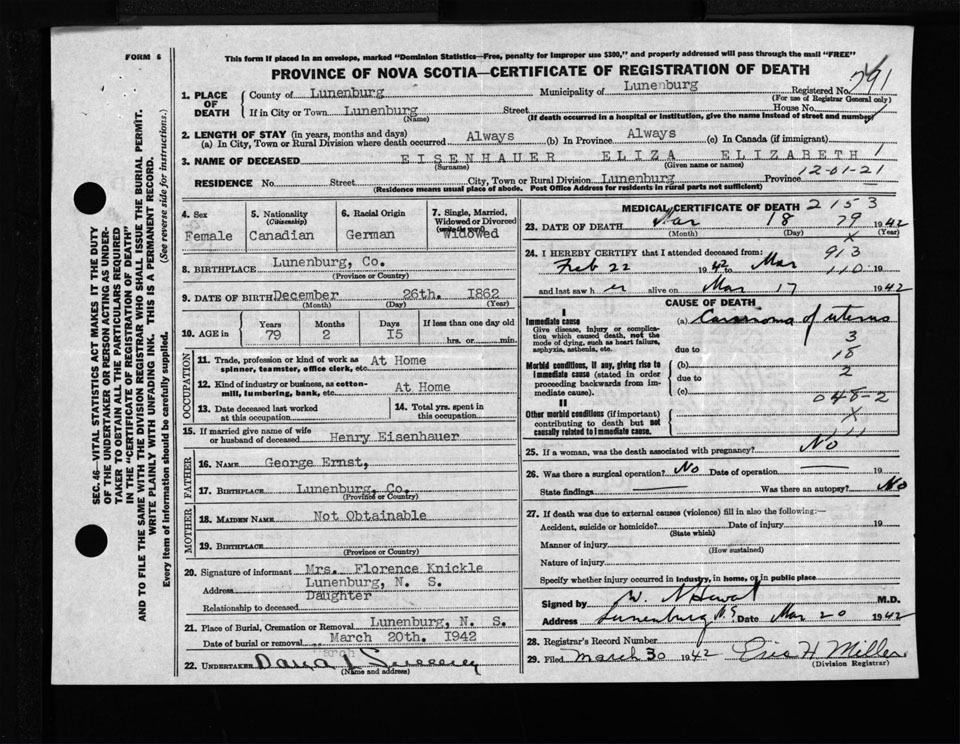 FORM 6
This form if placed in an envelope, marked "Dominion Statistics—Free, penalty for improper use $300," and properly addressed will pass through the mail "FREE"
PROVINCE OF NOVA SCOTIA—CERTIFICATE OF REGISTRATION OF DEATH
791
1. PLACE OF DEATH
County of Lunenburg Municipality of Lunenburg Registered No.
(For use of Registrar General only)
If in City or Town Lunenburg Street House No.
(Name) (If death occurred in a hospital or institution, give the name instead of street and number)
2. LENGTH OF STAY (in years, months and days)
(a) In City, Town or Rural Division where death occurred Always (b) In Province Always (c) In Canada (if immigrant)
3. NAME OF DECEASED EISENHAUER ELIZA ELIZABETH 1
(Surname) (Given name or names)
RESIDENCE No. Street City, Town or Rural Division Lunenburg Province
(Residence means usual place of abode. Post Office Address for residents in rural parts not sufficient)
12-01-21
4. Sex Female
5. Nationality (Citizenship) Canadian
6. Racial Origin German
7. Single, Married, Widowed or Divorced (write the word) Widowed
8. BIRTHPLACE Lunenburg, Co.
(Province or Country)
9. DATE OF BIRTH December 26th. 1862
(Month) (Day) (Year)
10. AGE in Years 79 Months 2 Days 15 If less than one day old hrs. or min.
OCCUPATION
11. Trade, profession or kind of work as spinner, teamster, office clerk, etc. At Home
12. Kind of industry or business, as cotton-mill, lumbering, bank, etc. At Home
13. Date deceased last worked at this occupation
14. Total yrs. spent in this occupation
15. If married give name of wife or husband of deceased Henry Eisenhauer
FATHER
16. NAME George Ernst,
17. BIRTHPLACE Lunenburg, Co.
(Province or Country)
MOTHER
18. MAIDEN NAME Not Obtainable
19. BIRTHPLACE
(Province or Country)
20. Signature of informant Mrs. Florence Knickle
Address Lunenburg, N. S.
Relationship to deceased Daughter
21. Place of Burial, Cremation or Removal Lunenburg, N. S.
Date of burial or removal March 20th. 1942
22. UNDERTAKER
(Name and address)
MEDICAL CERTIFICATE OF DEATH 2153
23. DATE OF DEATH Mar 18 79 1942
(Month) (Day) (Year)
X
24. I HEREBY CERTIFY that I attended deceased from: 913
Feb 22 1942 to Mar 110 19
and last saw h er alive on Mar 17 1942
CAUSE OF DEATH
I
Immediate cause (a) Carcinoma of uterus
Give disease, injury or complication which caused death, not the mode of dying, such as heart failure, asphyxia, asthenia, etc.
due to
3
18
Morbid conditions, if any, giving rise to immediate cause (stated in order proceeding backwards from immediate cause).
(b)
due to 2
(c) 048-2
II
Other morbid conditions (if important) contributing to death but not causally related to immediate cause.
X
111
25. If a woman, was the death associated with pregnancy? No
26. Was there a surgical operation? No Date of operation — 19
State findings — Was there an autopsy? No
27. If death was due to external causes (violence) fill in also the following:—
Accident, suicide or homicide? Date of injury 19
(State which)
Manner of injury
(How sustained)
Nature of injury
Specify whether injury occurred in industry, in home, or in public place
Signed by M.D.
Address Lunenburg N.S Date Mar 20 1942
28. Registrar's Record Number
29. Filed March 30 1942 H Miller
(Division Registrar)
SEC. 46—VITAL STATISTICS ACT MAKES IT THE DUTY
OF THE UNDERTAKER OR PERSON ACTING AS UNDER-
TAKER TO OBTAIN ALL THE PARTICULARS REQUIRED
IN THE "CERTIFICATE OF REGISTRATION OF DEATH"
AND TO FILE THE SAME WITH THE DIVISION REGISTRAR WHO SHALL ISSUE THE BURIAL PERMIT.
WRITE PLAINLY WITH UNFADING INK. THIS IS A PERMANENT RECORD.
Every item of information should be carefully supplied. (See reverse side for instructions.)